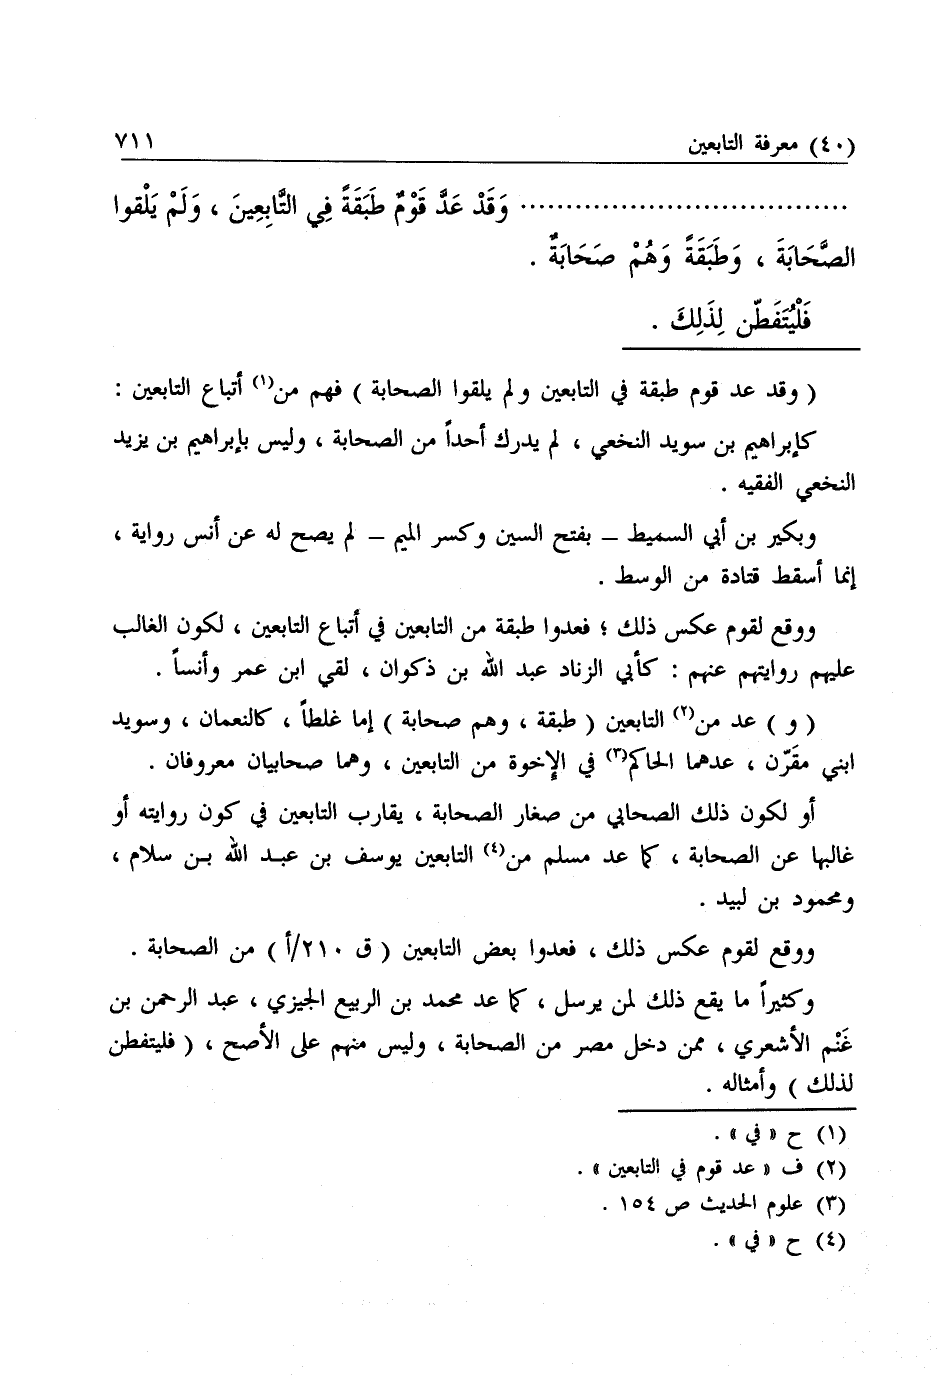 (٤٠) معرفة التابعين ٧١١
................................... وَقَدْ عَدَّ قَوْمٌ طَبَقَةً فِي التَّابِعِينَ ، وَلَمْ يَلْقوا
الصَّحَابَةَ ، وَطَبَقَةً وَهُمْ صَحَابَةٌ .
فَلْيُتَفَطَّن لِذَلِكَ .
( وقد عد قوم طبقة في التابعين ولم يلقوا الصحابة ) فهم من(١) أتباع التابعين :
كإبراهيم بن سويد النخعي ، لم يدرك أحداً من الصحابة ، وليس بإبراهيم بن يزيد
النخعي الفقيه .
وبكير بن أبي السميط – بفتح السين وكسر الميم – لم يصح له عن أنس رواية ،
إنما أسقط قتادة من الوسط .
ووقع لقوم عكس ذلك ؛ فعدوا طبقة من التابعين في أتباع التابعين ، لكون الغالب
عليهم روايتهم عنهم : كأبي الزناد عبد الله بن ذكوان ، لقي ابن عمر وأنساً .
( و ) عد من(٢) التابعين ( طبقة ، وهم صحابة ) إما غلطاً ، كالنعمان ، وسويد
ابني مقَرّن ، عدهما الحاكم(٣) في الإخوة من التابعين ، وهما صحابيان معروفان .
أو لكون ذلك الصحابي من صغار الصحابة ، يقارب التابعين في كون روايته أو
غالبها عن الصحابة ، كما عد مسلم من(٤) التابعين يوسف بن عبد الله بن سلام ،
ومحمود بن لبيد .
ووقع لقوم عكس ذلك ، فعدوا بعض التابعين ( ق ٢١٠/أ ) من الصحابة .
وكثيراً ما يقع ذلك لمن يرسل ، كما عد محمد بن الربيع الجيزي ، عبد الرحمن بن
غَنْم الأشعري ، ممن دخل مصر من الصحابة ، وليس منهم على الأصح ، ( فليتفطن
لذلك ) وأمثاله .
(١) ح « في » .
(٢) ف « عد قوم في التابعين » .
(٣) علوم الحديث ص ١٥٤ .
(٤) ح « في » .